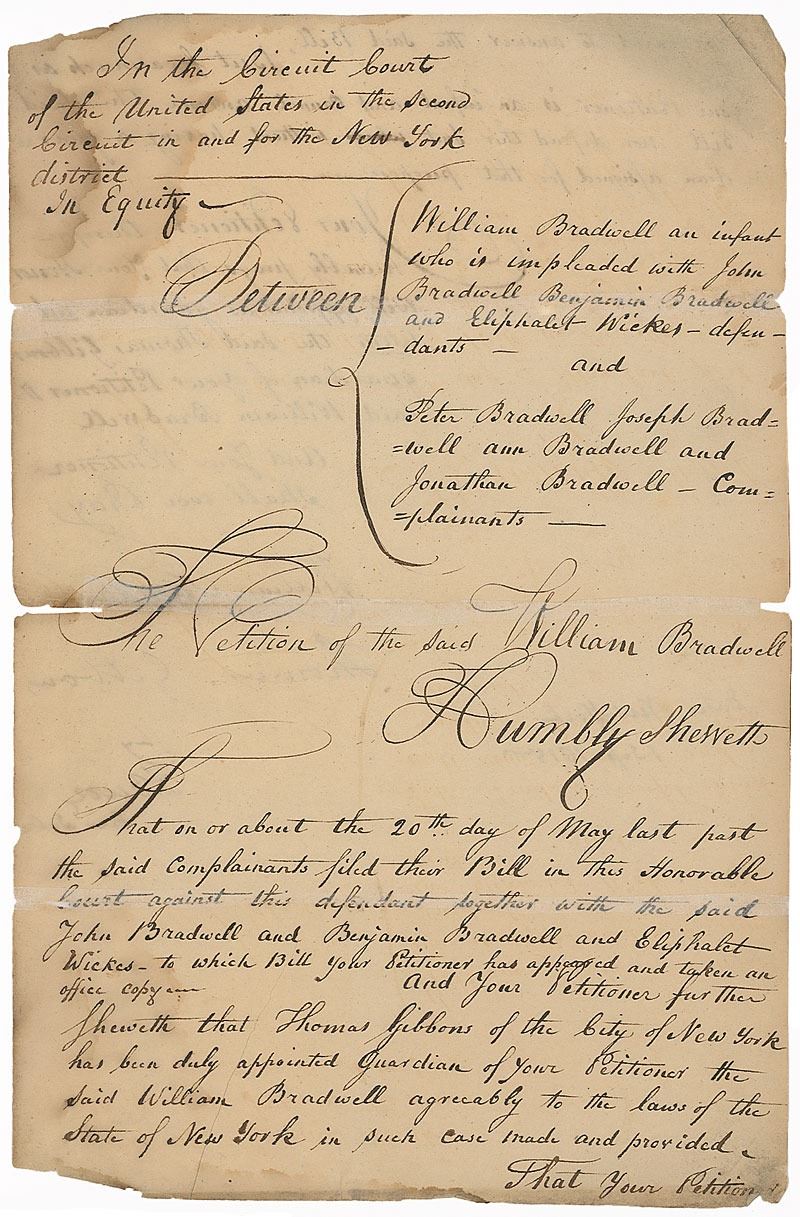 In the Circuit Court
of the United States in the second
Circuit in and for the New York
district
In Equity
Between
William Bradwell an infant
who is impleaded with John
Bradwell Benjamin Bradwell
and Eliphalet Wickes – defen-
- dants –
and
Peter Bradwell Joseph Brad=
=well ann Bradwell and
Jonathan Bradwell – Com=
=plainants —
The Petition of the said William Bradwell
Humbly Sheweth
That on or about the 20th day of May last past
the said Complainants filed their Bill in this Honorable
Court against this defendant together with the said
John Bradwell and Benjamin Bradwell and Eliphalet
Wickes – to which Bill your Petitioner has appeared and taken an
office copy — And Your Petitioner further
Sheweth that Thomas Gibbons of the City of New York
has been duly appointed Guardian of your Petitioner the
said William Bradwell agreeably to the laws of the
State of New York in such case made and provided
That Your Petitioner